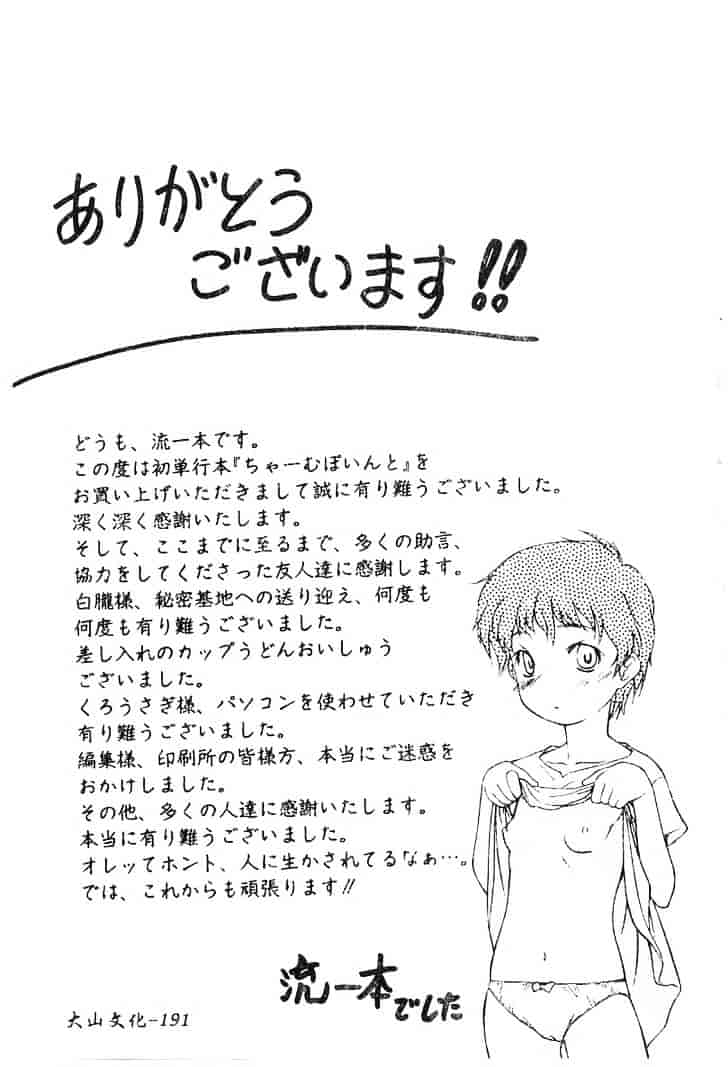 ありがとう
ございます!!
どうも、流一本です。
この度は初単行本『ちゃーむぽいんと』を
お買い上げいただきまして誠に有り難うございました。
深く深く感謝いたします。
そして、ここまでに至るまで、多くの助言、
協力をしてくださった友人達に感謝します。
白朧様、秘密基地への送り迎え、何度も
何度も有り難うございました。
差し入れのカップうどんおいしゅう
ございました。
くろうさぎ様、パソコンを使わせていただき
有り難うございました。
編集様、印刷所の皆様方、本当にご迷惑を
おかけしました。
その他、多くの人達に感謝いたします。
本当に有り難うございました。
オレッてホント、人に生かされてるなぁ…。
では、これからも頑張ります!!
流一本でした
大山文化-191